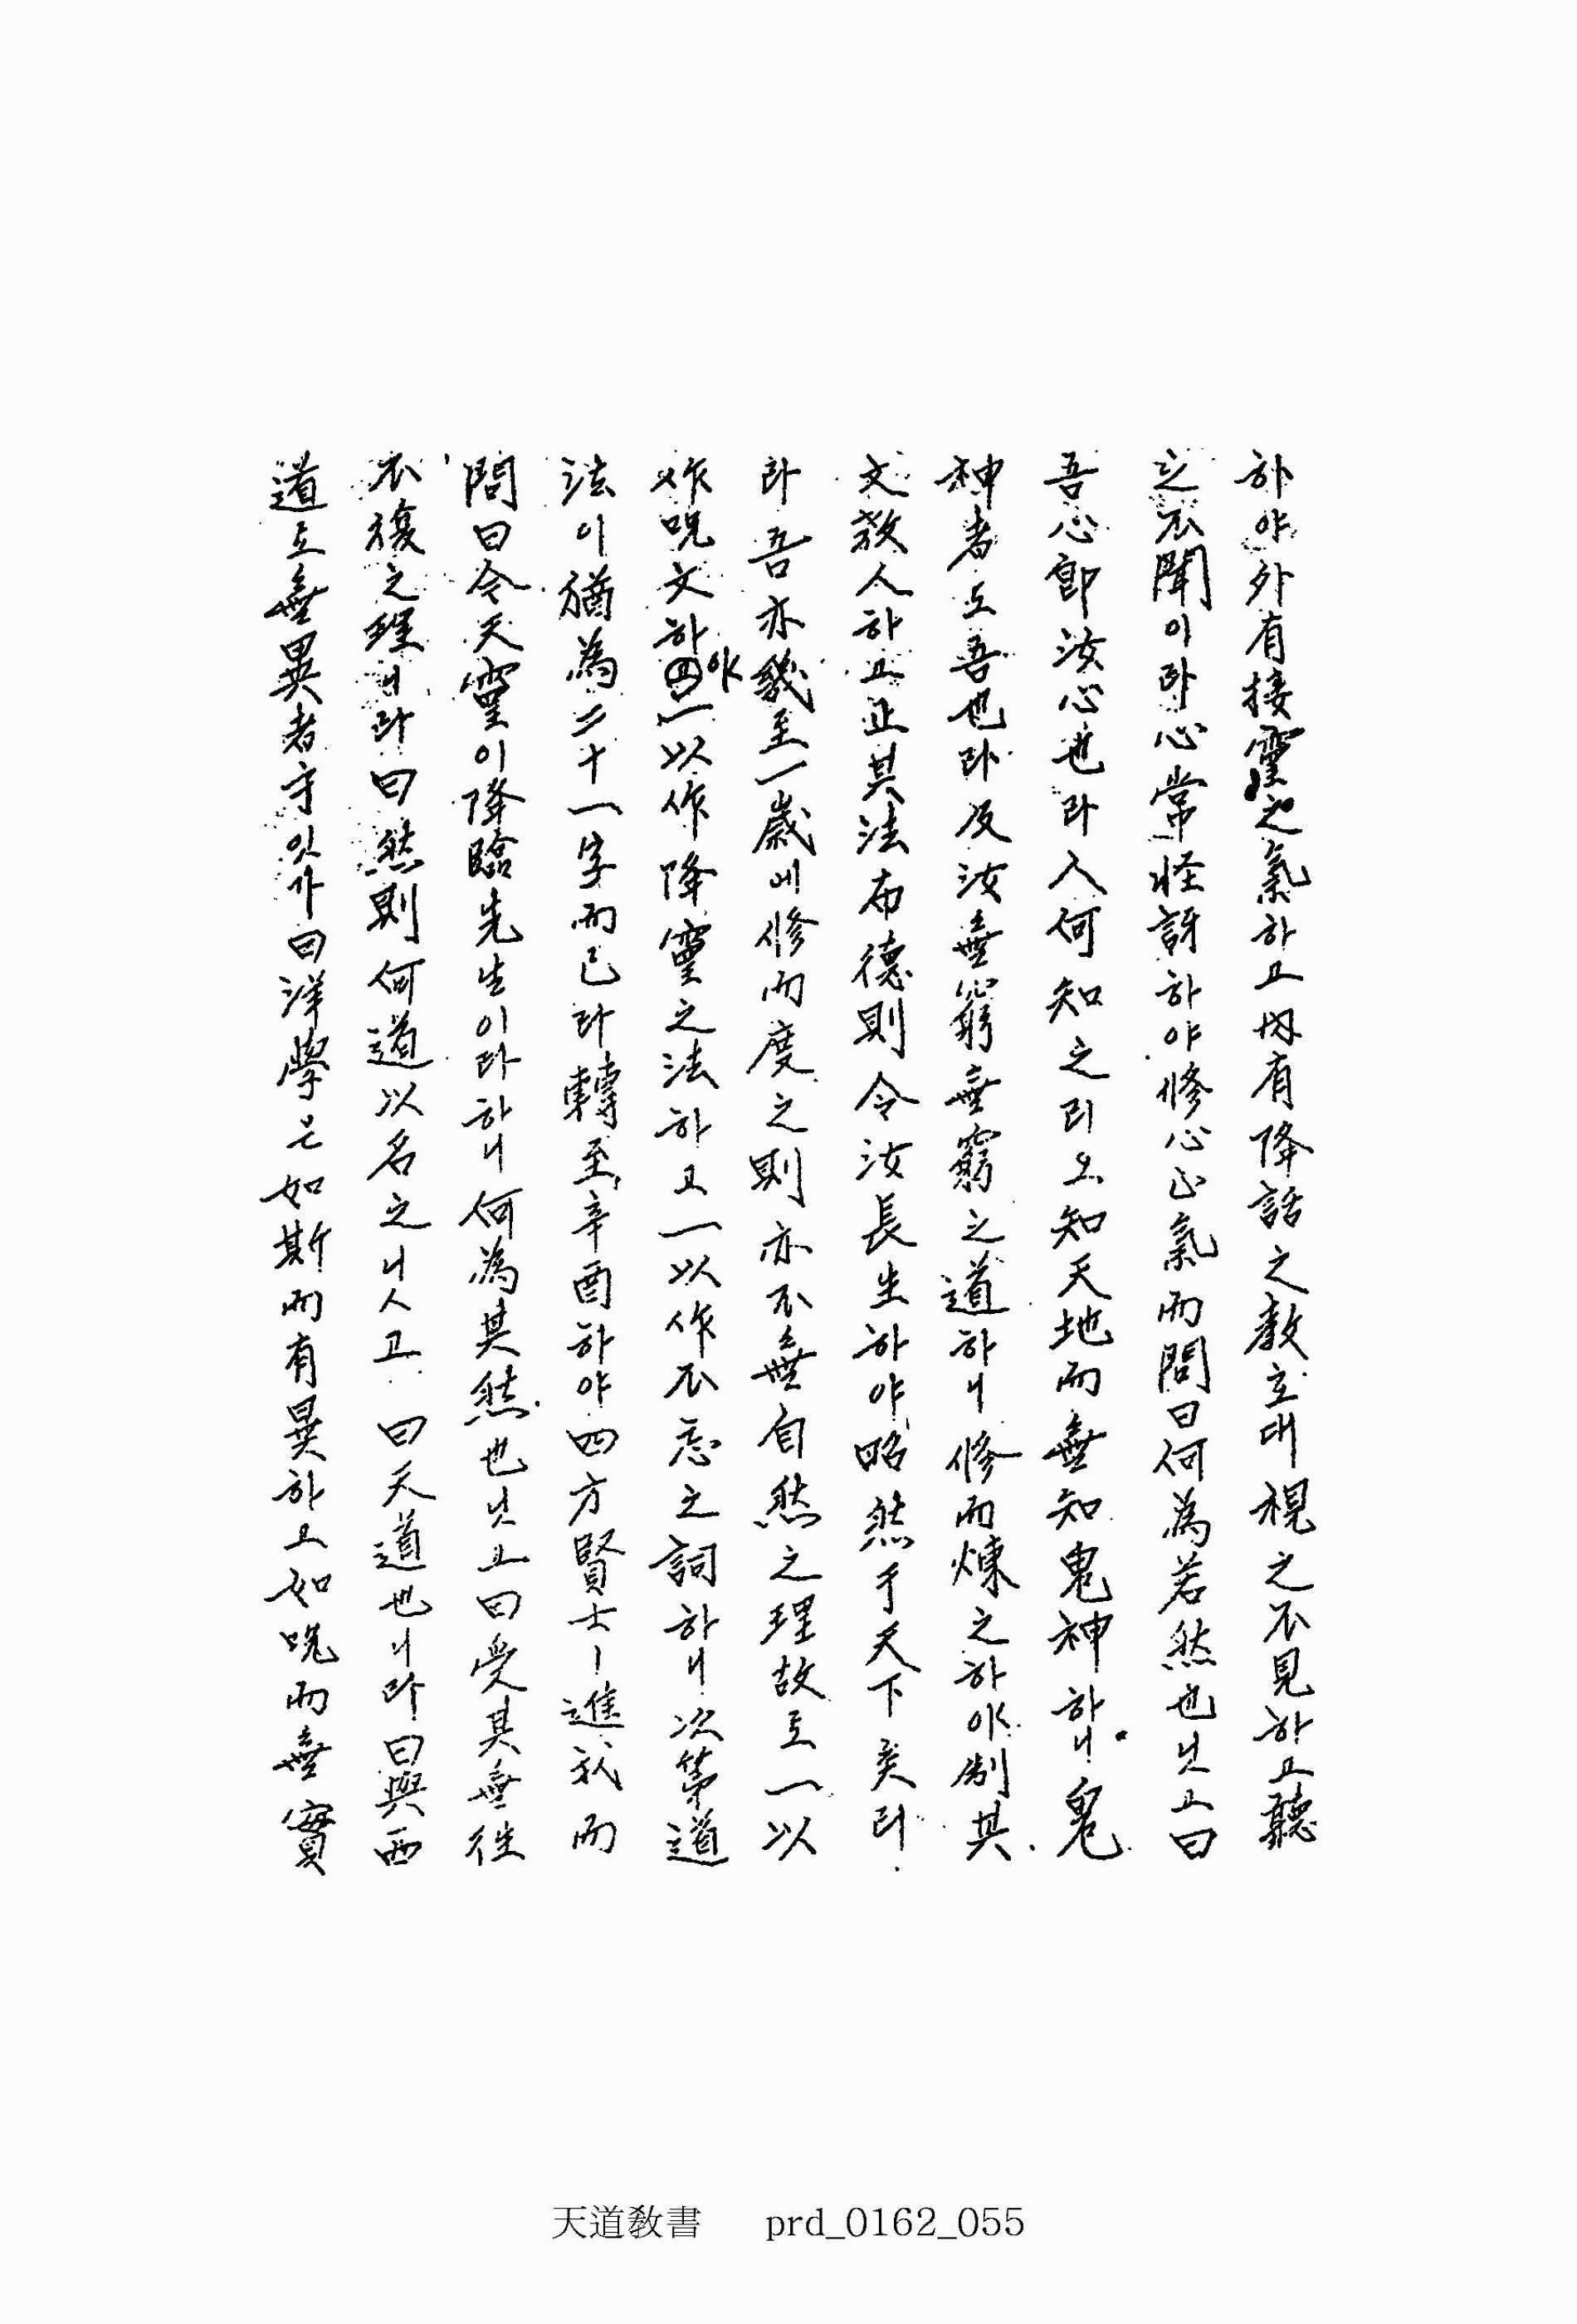 하야外有接靈之氣하고內有降話之敎호대視之不見하고聽
之不聞이라心常怪訝하야修心正氣而問曰何為若然也닛고曰
吾心卽汝心也라人何知之리오知天地而無知鬼神하니鬼
神者도吾也라及汝無窮無窮之道하니修而煉之하야制其
文敎人하고正其法布德則令汝長生하야昭然于天下矣리
라吾亦幾至一歲에修而度之則亦不無自然之理故로一以
作呪文하야一以作降靈之法하고一以作不忘之詞하니次第道
法이猶為二十一字而已라轉至辛酉하야四方賢士ㅣ進我而
問曰今天靈이降臨先生이라하니何為其然也닛고曰受其無往
不復之理니라曰然則何道以名之니잇고曰天道也니라曰與西
道로無異者乎잇가曰洋學은如斯而有異하고如呪而無實
天道敎書 prd_0162_055